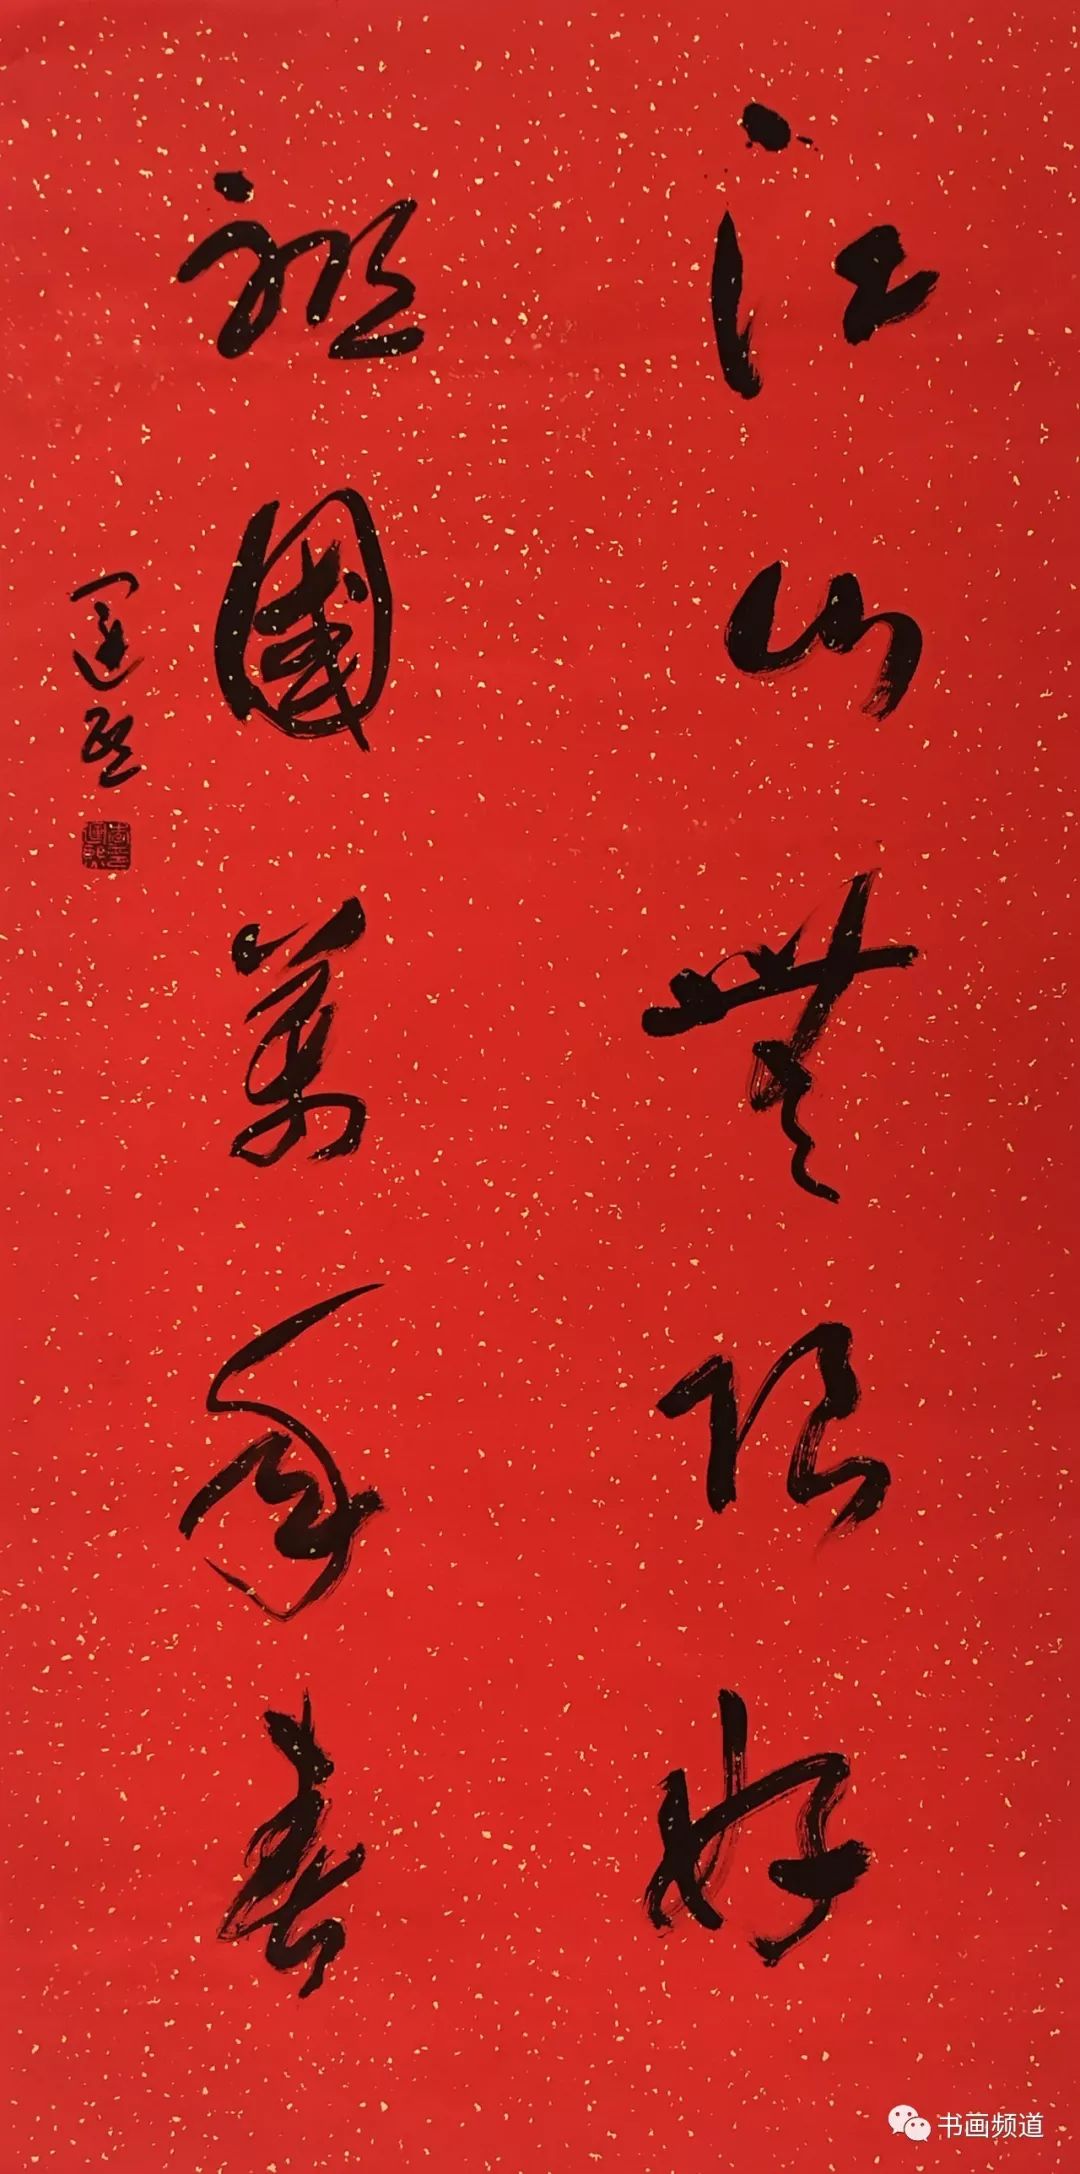 江山無限好
祖國萬年春
書画频道